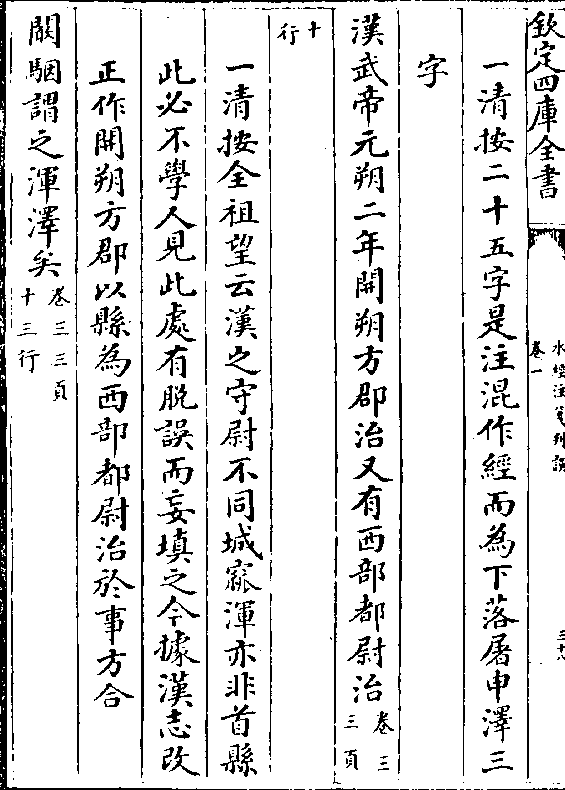 欽定四庫全書
水經注箋刊誤
卷一
三十八
一清按二十五字是注混作經而為下落屠申澤三
字
漢武帝元朔二年開朔方郡治又有西部都尉治卷三三頁
十行
一清按全祖望云漢之守尉不同城窳渾亦非首縣
此必不學人見此處有脫誤而妄填之今據漢志改
正作開朔方郡以縣為西部都尉治於事方合
闞駰謂之渾澤矣卷三三頁十三行